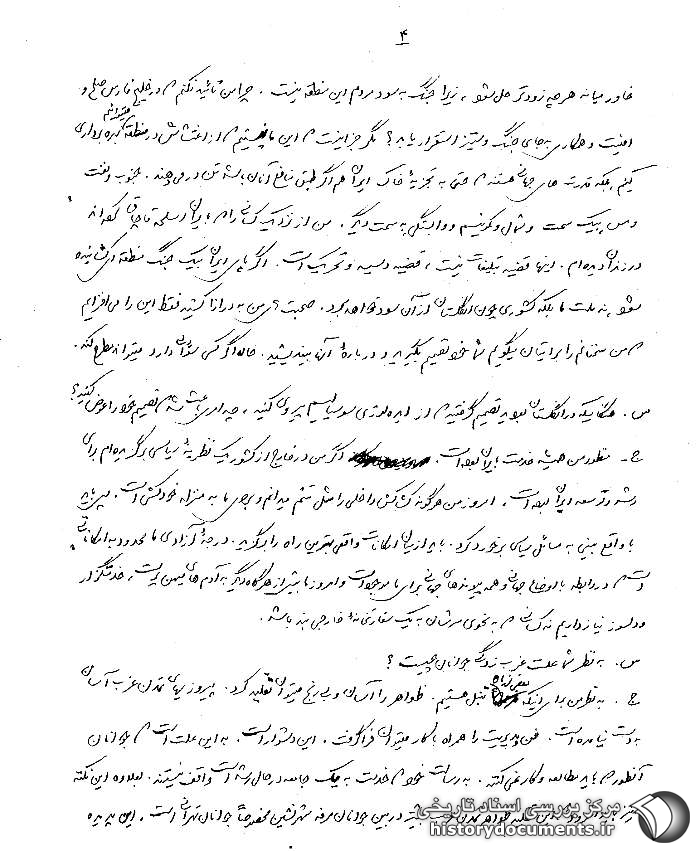 ۴
خاور میانه هر چه زودتر حل شود، زیرا جنگ به سود مردم این منطقه نیست. چرا من تائید نکنم که در خلیج فارس صلح و
امنیت و همکاری به جای جنگ و ستیز استقرار یابد؟ مگر جز اینست که این ما نیستیم که از اغتشاش در منطقه بهره برداری میتوانیم
کنیم بلکه قدرت های جهانی هستند که حتی به تجزیهٔ خاک ایران هم اگر طبق منافع آنان باشد تن در می دهند. جنوب و نفت
و مس به یک سمت و شمال و کمونیسم و وابستگی به سمت دیگر. من از نزدیک کسانی را که با ایران اسلحه قاچاق کرده اند
در زندان دیده ام. اینها قضیه تبلیغات نیست، قضیه دسیسه و تحریک است. اگر پای ایران به یک جنگ منطقه ای کشانیده
شود، نه ملت ما بلکه کشوری چون انگلستان از آن سود خواهد برد. صحبت من به درازا کشید فقط این را می افزایم
که من سخنانم را برایتان میگویم شما خود تصمیم بگیرید و دربارهٔ آن بیندیشید. حالا اگر کسی سؤالی دارد میتواند مطرح کند.
س. هنگامیکه در انگلستان بودید تصمیم گرفتید که از ایدهٔ سوسیالیسم پیروی کنید، چه امری باعث شد که تصمیم خود را عوض کنید؟
ج- منظور من همیشه خدمت به ایران بوده است. اگر من در خارج از کشور یک نظریهٔ سیاسی برگزیده ام برای
رشد و توسعه ایران بوده است. امروز من هرگونه کشمکش داخلی را مثل سم میدانم و برای ما به منزله خودکشی است. می باید
با واقع بینی به مسائل سیاسی برخورد کرد. باید از میان امکانات واقعی بهترین راه را برگزید. درجهٔ آزادی ما محدود به امکاناتی
است که در رابطه با اوضاع جهانی و همه پیوندهای جهانی برای ما موجود است و امروز ما بیش از هر گاه دیگر به آدم های میهن پرست، خدمتگزار
و دلسوز نیاز داریم نه کسانی که به نحوی سرشان به یک سفارتخانهٔ خارجی بند باشد.
س. به نظر شما علت غرب زدگی جوانان چیست؟
ج. به نظر من برای اینکه بعضی زیاد تنبل هستیم. ظواهر را آسان و بی رنج میتوان تقلید کرد. پیروزیهای تمدن غرب آسان
به دست نیامده است. فن و مدیریت را همراه با کار میتوان فرا گرفت. این دشوار است. به این علت است که جوانان
آنطور که باید مطالعه و کار نمی کنند. به رسالت خود که خدمت به یک جامعه در حال رشد است واقف نیستند. بعلاوه این نکته
در بین جوانان مرفه شهرنشین مخصوصاً جوانان تهرانی است. این پدیده
مرکز بررسی اسناد تاریخی
historydocuments.ir